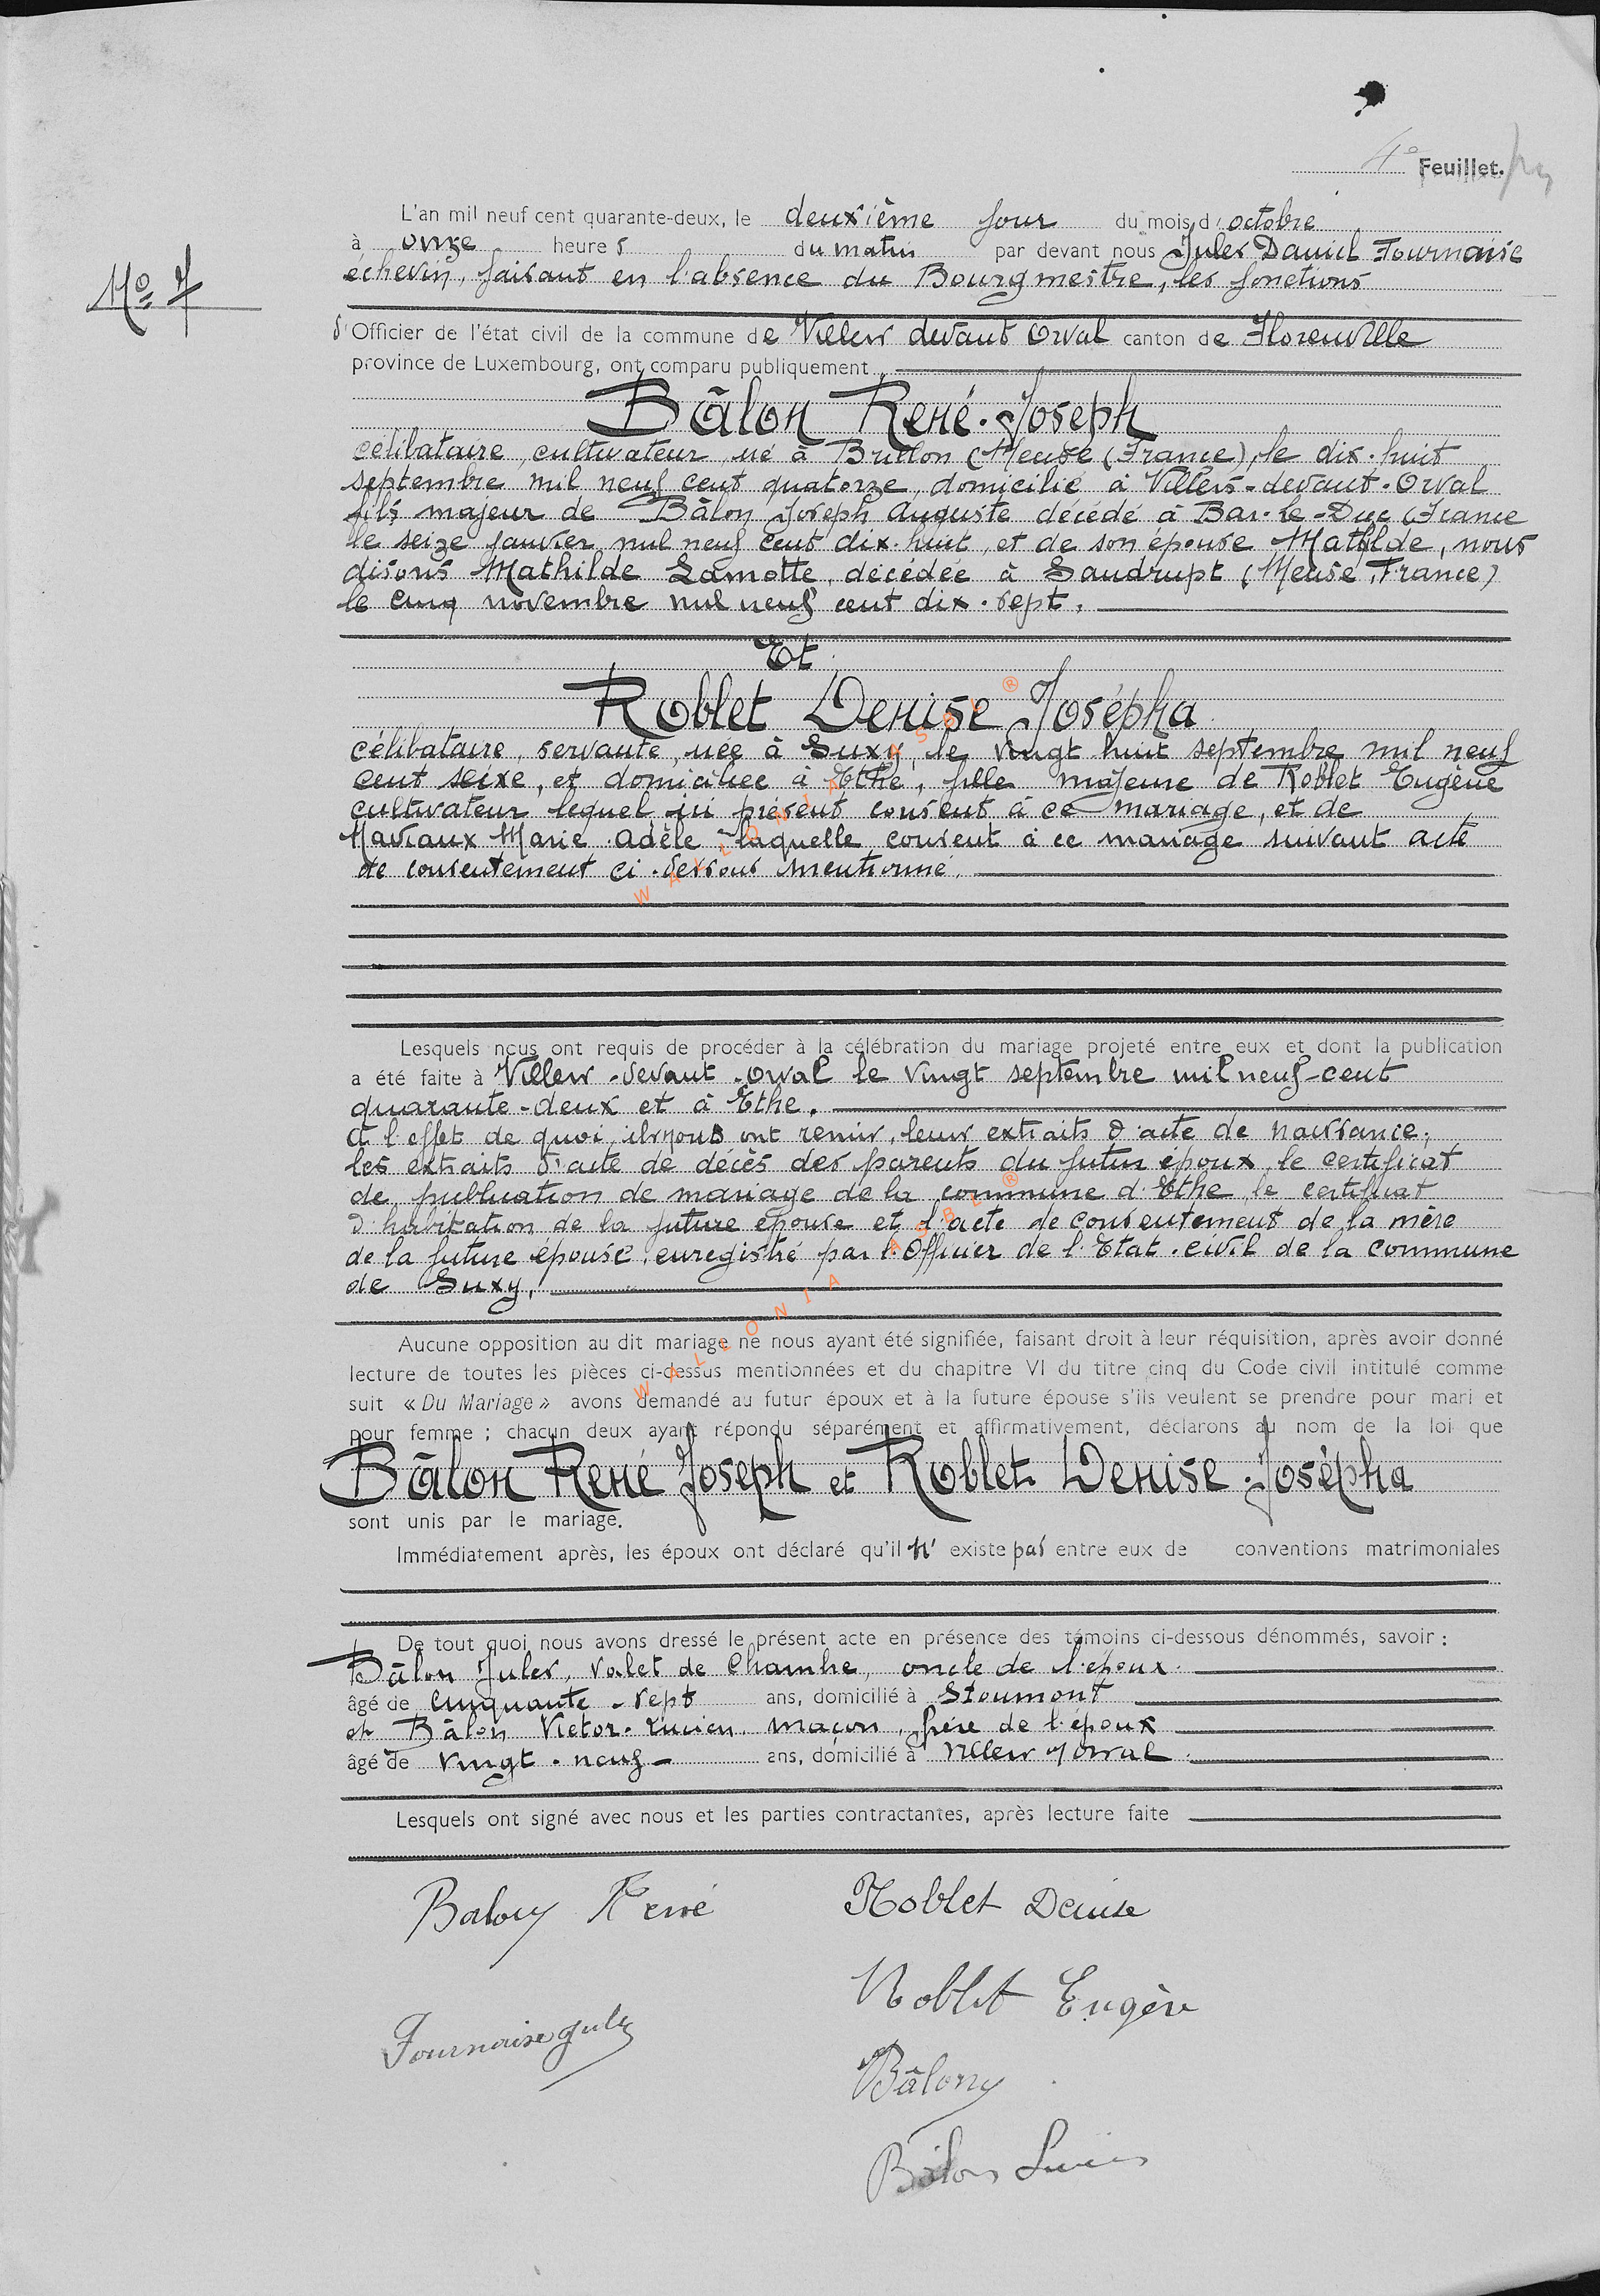 4e Feuillet.
L'an mil neuf cent quarante-deux, le deuxième jour du mois d'octobre
à onze heures du matin par devant nous Jules Daniel Fournaise
échevin, faisant en l'absence du Bourgmestre, les fonctions
No 7
d'Officier de l'état civil de la commune de Villers devant Orval canton de Florenville
province de Luxembourg, ont comparu publiquement
Bâlon René-Joseph
célibataire, cultivateur, né à Brillon (Meuse (France), le dix-huit
septembre mil neuf cent quatorze, domicilié à Villers-devant-Orval
fils majeur de Bâlon Joseph Auguste décédé à Bar-le-Duc (France
le seize janvier mil neuf cent dix-huit, et de son épouse Matilde, nous
disons Mathilde Lamotte, décédée à Saudrupt (Meuse, France)
le cinq novembre mil neuf cent dix-sept.
Et
Roblet Denise Josépha
célibataire, servante, née à Suxy, le vingt huit septembre mil neuf
cent seize, et domiciliée à Ethe, fille majeure de Roblet Eugène
cultivateur lequel ici présent consent à ce mariage, et de
Marie Adèle laquelle consent à ce mariage suivant acte
de consentement ci-dessous mentionné.
Lesquels nous ont requis de procéder à la célébration du mariage projeté entre eux et dont la publication
a été faite à Villers-devant-Orval le vingt septembre mil neuf-cent
quarante-deux et à Ethe.
A l'effet de quoi, ils nous ont remis, leurs extraits d'acte de naissance,
les extraits d'acte de décès des parents du futur époux, le certificat
de publication de mariage de la commune d'Ethe, le certificat
d'habitation de la future épouse et l'acte de consentement de la mère
de la future épouse, enregistré par l'Officier de l'Etat-civil de la commune
de Suxy.
Aucune opposition au dit mariage ne nous ayant été signifiée, faisant droit à leur réquisition, après avoir donné
lecture de toutes les pièces ci-dessus mentionnées et du chapitre VI du titre cinq du Code civil intitulé comme
suit « Du Mariage » avons demandé au futur époux et à la future épouse s'ils veulent se prendre pour mari et
pour femme ; chacun deux ayant répondu séparément et affirmativement, déclarons au nom de la loi que
Bâlon René Joseph et Roblet Denise-Josépha
sont unis par le mariage.
Immédiatement après, les époux ont déclaré qu'il n'existe pas entre eux de conventions matrimoniales
De tout quoi nous avons dressé le présent acte en présence des témoins ci-dessous dénommés, savoir :
Bâlon Jules, valet de chambre, oncle de l'époux.
âgé de cinquante-sept ans, domicilié à Stoumont
et Bâlon Victor-Lucien, maçon, frère de l'époux
âgé de vingt-neuf ans, domicilié à Villers d/ Orval.
Lesquels ont signé avec nous et les parties contractantes, après lecture faite
Balon René
Roblet Denise
Roblet Eugène
Fournaise Jules
Bâlon J
Bâlon Lucien
WALLONIA ASBL ®
WALLONIA ASBL ®